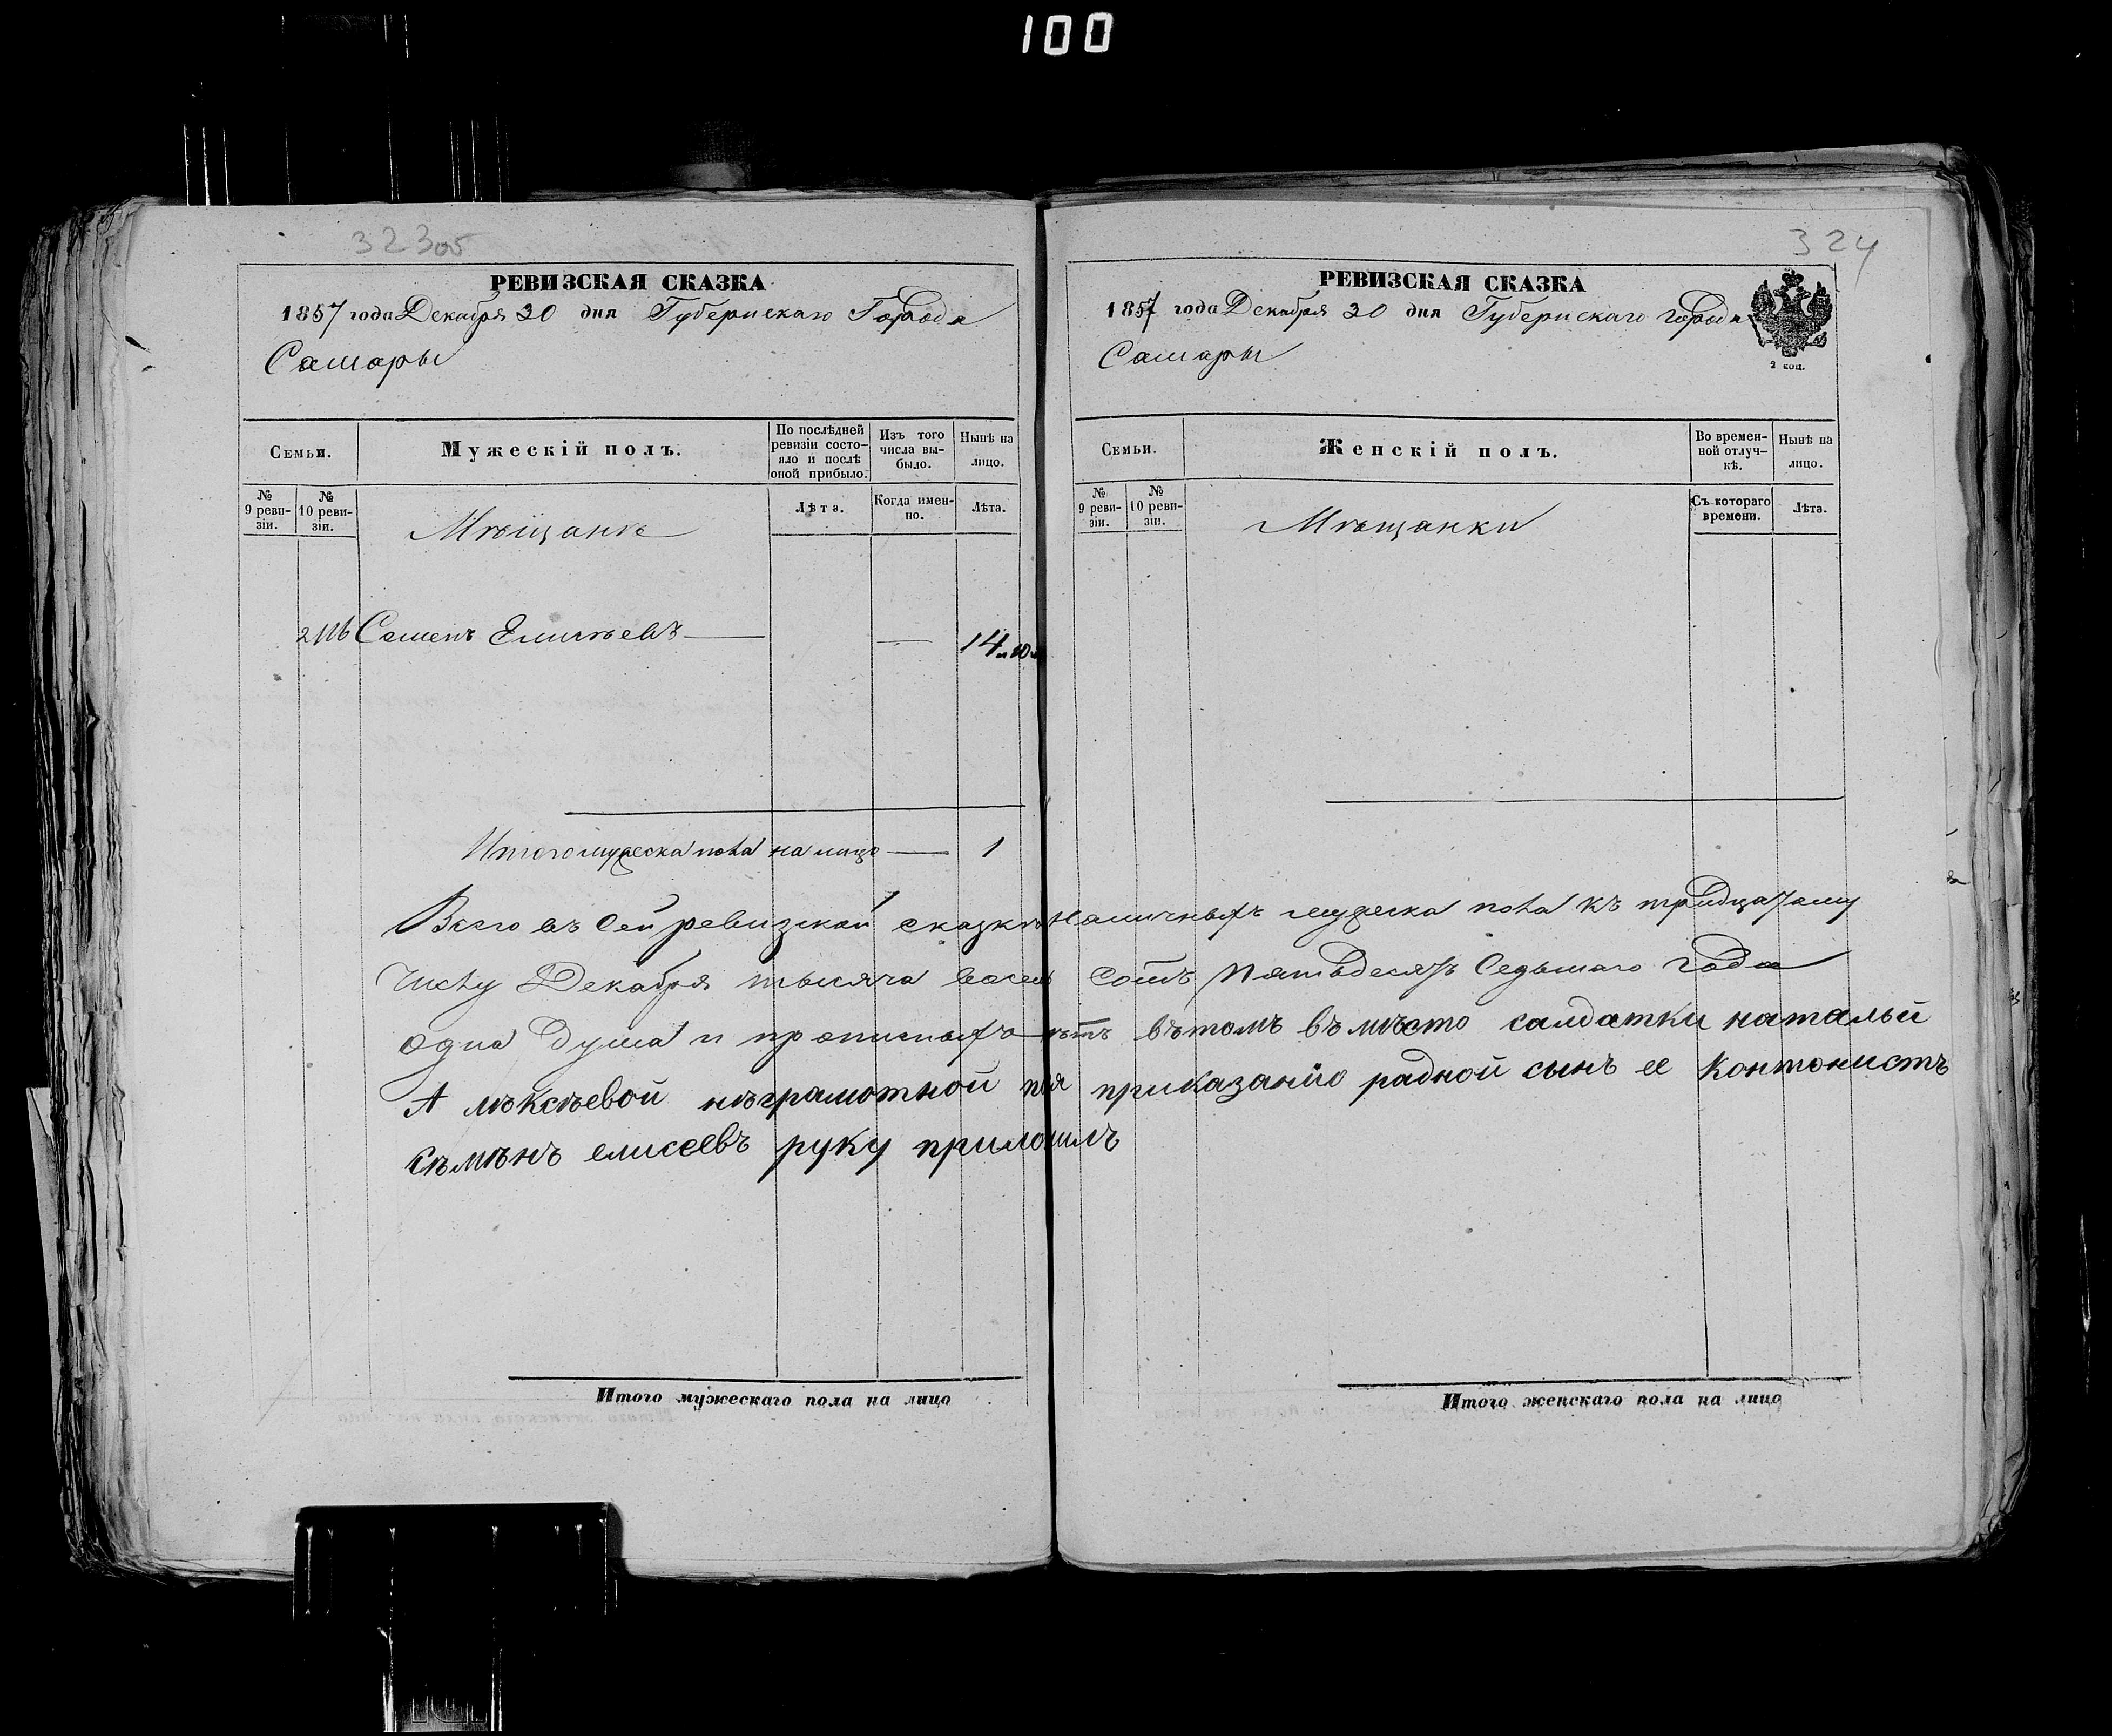 100
323об
РЕВИЗСКАЯ СКАЗКА
1857 года Декабря 30 дня Губернскаго Города
Самары
Семьи.
Мужескій полъ.
По послѣдней ревизіи состояло и послѣ оной прибыло.
Изъ того числа выбыло.
Нынѣ на лицо.
№ 9 ревизіи.
№ 10 ревизіи.
Мѣщанъ
Лѣта.
Когда именно.
Лѣта.
Семенъ Елисѣевъ
—
14
Итого мужеска пола на лицо — 1
324
РЕВИЗСКАЯ СКАЗКА
1857 года Декабря 30 дня Губернскаго города
Самары
2 коп.
Семьи.
Женскій полъ.
Во временной отлучкѣ.
Нынѣ на лицо.
№ 9 ревизіи.
№ 10 ревизіи.
Мѣщанки
Съ котораго времени.
Лѣта.
Всего въ сей ревизской сказкѣ наличныхъ мужеска пола къ тридцатому
числу Декабря тысяча восемь сотъ пятьдесятъ седьмаго года
одна душа и прописныхъ нѣтъ вътомъ въмѣсто салдатки натальи
Алѣксѣевой нѣграмотной по приказанїю радной сынъ ее контонистъ
сѣмѣнъ елисеевъ руку приложилъ
Итого мужескаго пола на лицо
Итого женскаго пола на лицо